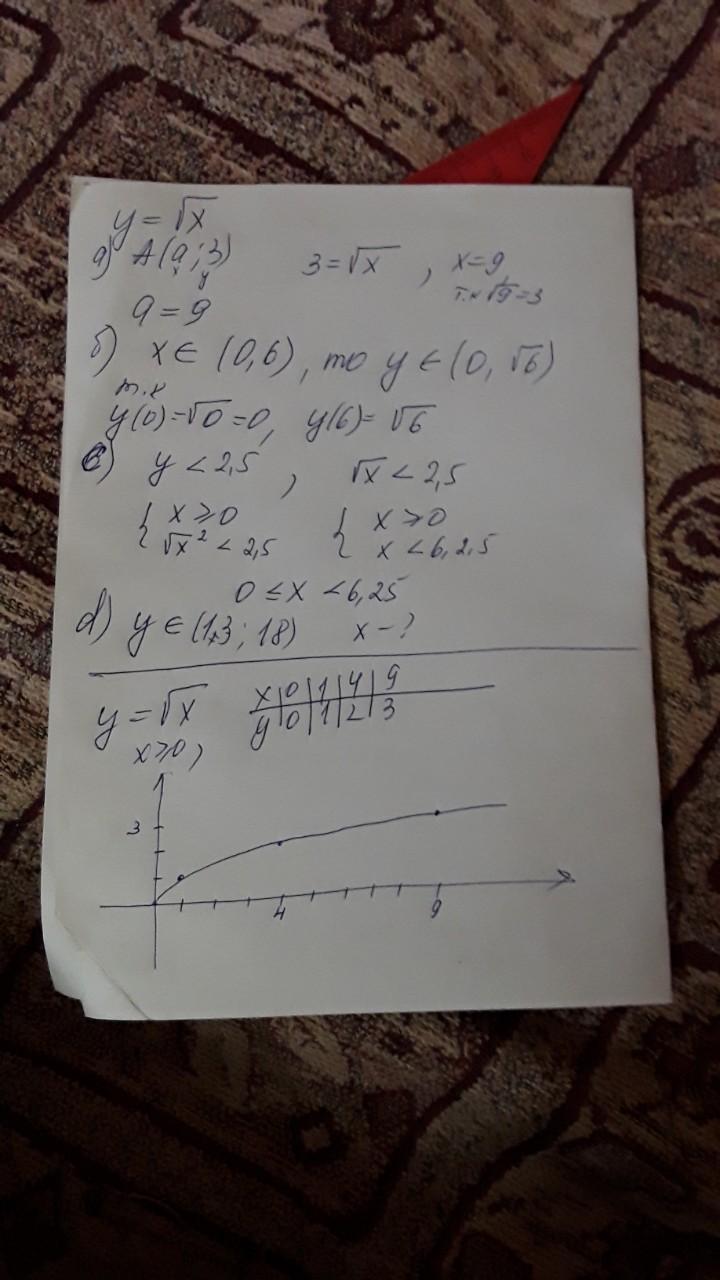 y = √x
a) A(a; 3) 3 = √x , x = 9
x y т.к √9 = 3
a = 9
б) x ∈ (0,6), то y ∈ (0, √6)
т.к
y(0) = √0 = 0, y(6) = √6
c) y < 2,5 , √x < 2,5
{ x ≥ 0 { x ≥ 0
√x² < 2,5 x < 6,2,5
0 ≤ x < 6,25
d) y ∈ (1,3; 18) x - ?
y = √x x | 0 | 1 | 4 | 9
x ≥ 0, y | 0 | 1 | 2 | 3
3
4 9